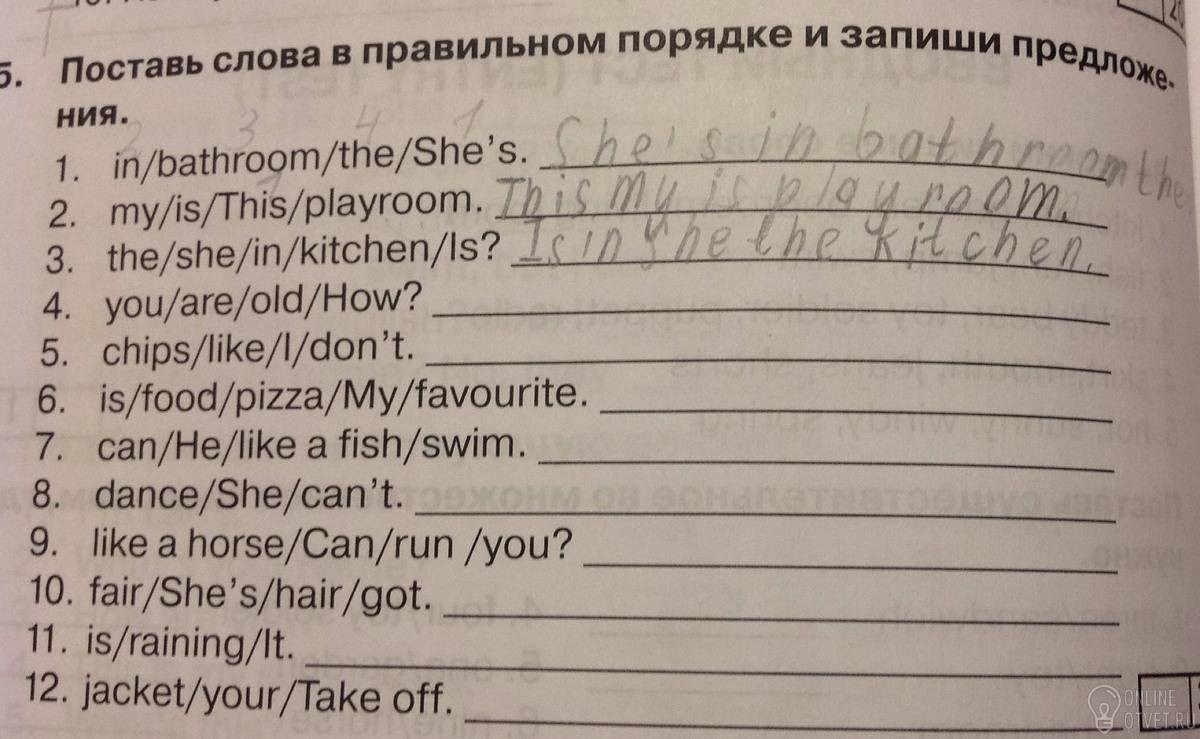 5. Поставь слова в правильном порядке и запиши предложе-
ния.
2 3 4 1
1. in/bathroom/the/She's. She's in bathroom the
2. my/is/This/playroom. This my is playroom.
3. the/she/in/kitchen/Is? Is in she the kitchen.
4. you/are/old/How?
5. chips/like/I/don't.
6. is/food/pizza/My/favourite.
7. can/He/like a fish/swim.
8. dance/She/can't.
9. like a horse/Can/run /you?
10. fair/She's/hair/got.
11. is/raining/It.
12. jacket/your/Take off.
ONLINE
OTVET.RU